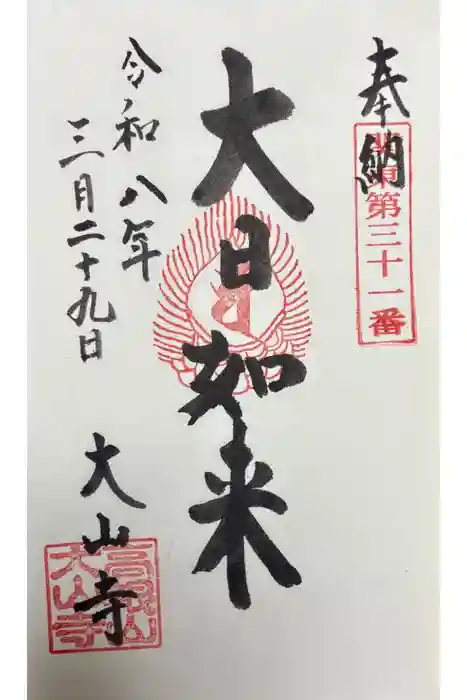 奉納
東第三十一番
大日如来
令和八年
三月二十九日
大山寺
大山寺